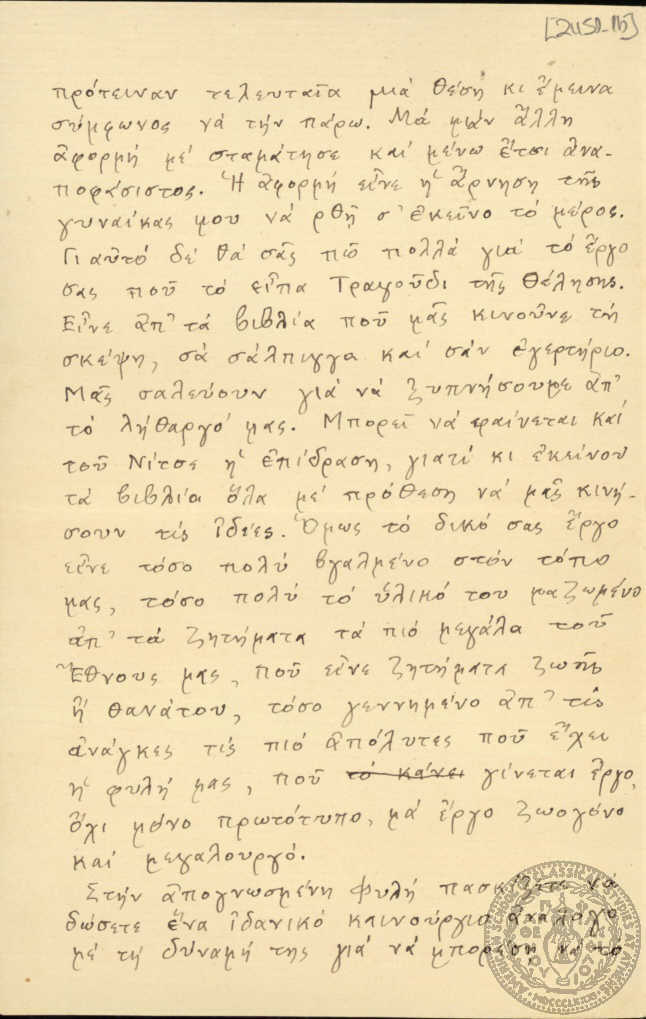 [2450-1b]
πρότειναν τελευταῖα μιά θέση κι ἔμεινα
σύμφωνος νά τήν πάρω. Μά μιάν ἄλλη
ἀφορμή μέ σταμάτησε καί μένω ἔτσι ἀνα-
ποφάσιστος. Ἡ ἀφορμή εἶνε ἡ ἄρνηση τῆς
γυναίκας μου νά ρθῆ σ' ἐκεῖνο τό μέρος.
Γι αὐτό δέ θά σᾶς πῶ πολλά γιά τό ἔργο
σας ποῦ τό εἶπα Τραγοῦδι τῆς Θέλησης.
Εἶνε ἀπ' τά βιβλία ποῦ μᾶς κινοῦνε τή
σκέψη, σά σάλπιγγα καί σάν ἐγερτήριο.
Μᾶς σαλεύουν γιά νά ξυπνήσουμε ἀπ'
τό λήθαργό μας. Μπορεῖ νά φαίνεται καί
τοῦ Νίτσε ἡ ἐπίδραση, γιατί κι ἐκείνου
τά βιβλία ὅλα μέ πρόθεση νά μᾶς κινή-
σουν τίς ἰδέες. Ὅμως τό δικό σας ἔργο
εἶνε τόσο πολύ βγαλμένο στόν τόπο
μας, τόσο πολύ τό ὑλικό του μαζωμένο
ἀπ' τά ζητήματα τά πιό μεγάλα τοῦ
Ἔθνους μας, ποῦ εἶνε ζητήματα ζωῆς
ἤ θανάτου, τόσο γεννημένο ἀπ' τίς
ἀνάγκες τίς πιό ἀπόλυτες ποῦ ἔχει
ἡ φυλή μας, ποῦ τό κάνει γίνεται ἔργο,
ὄχι μόνο πρωτότυπο, μά ἔργο ζωογόνο
καί μεγαλουργό.
Στήν ἀπογνωσμένη φυλή πασκίζετε νά
δώσετε ἕνα ἰδανικό καινούργιο ἀνάλογο
μέ τή δύναμή της γιά νά μπορέση νά τό
AMERICAN SCHOOL OF CLASSICAL STUDIES AT ATHENS
MDCCCLXXXI